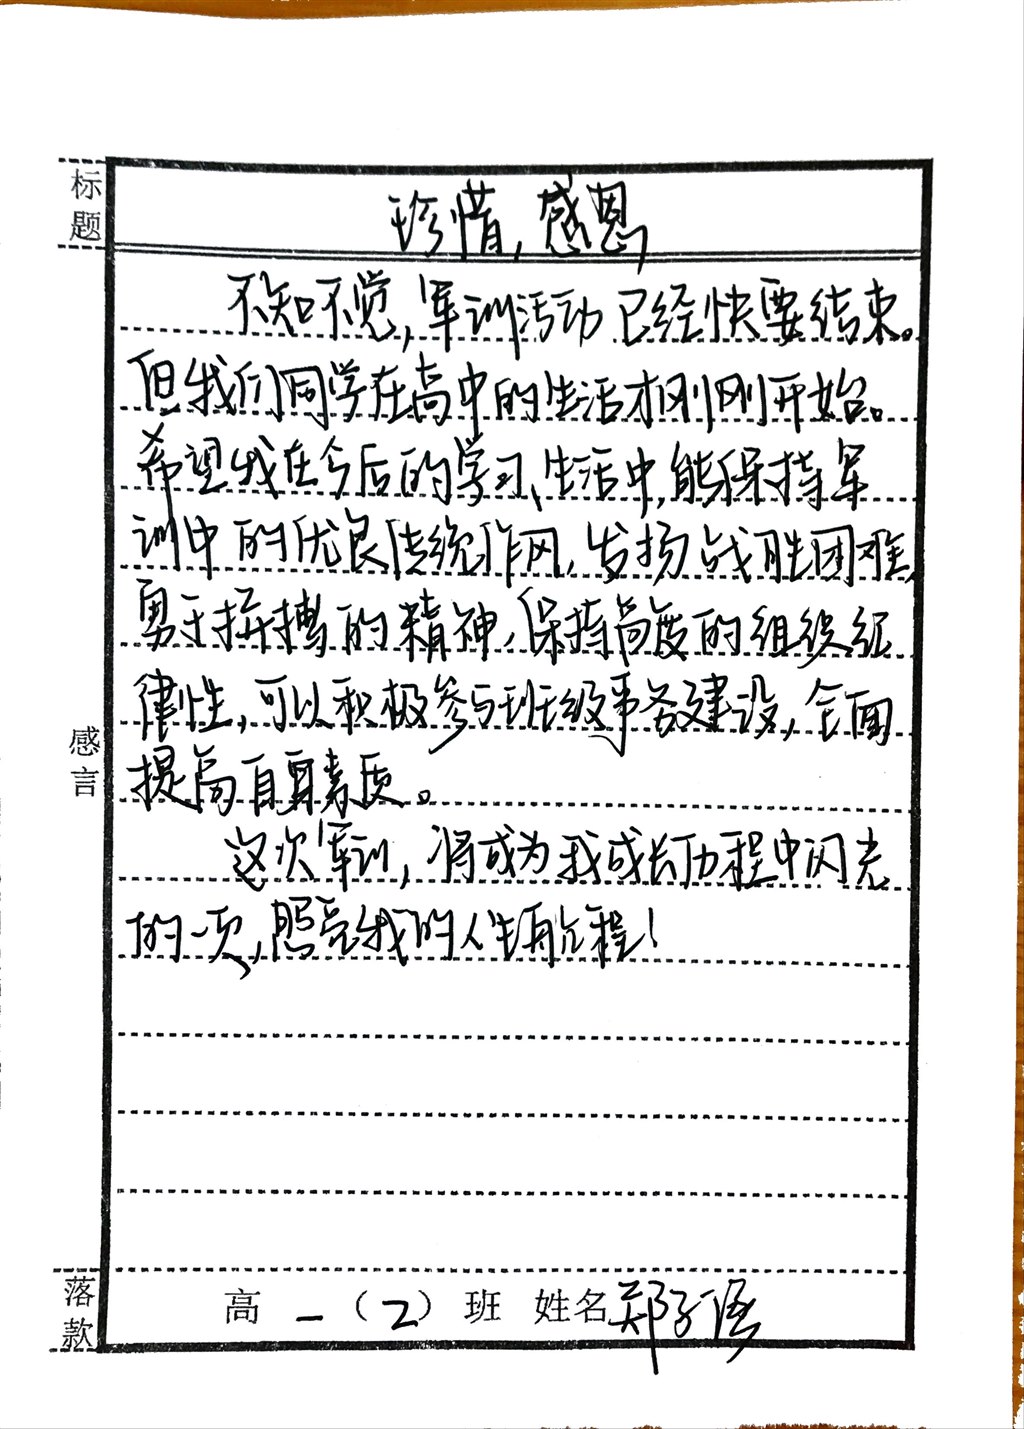 标题
珍惜,感恩
不知不觉,军训活动已经快要结束。
但我们同学在高中的生活才刚刚开始。
希望我在今后的学习、生活中,能保持军
训中的优良传统作风,发扬战胜困难,
勇于拼搏的精神,保持高度的组织纪
律性,可以积极参与班级事务建设,全面
提高自身素质。
这次军训,将成为我成长历程中闪光
的一页,照亮我的人生航程!
感言
落款
高一(2)班 姓名 郑子